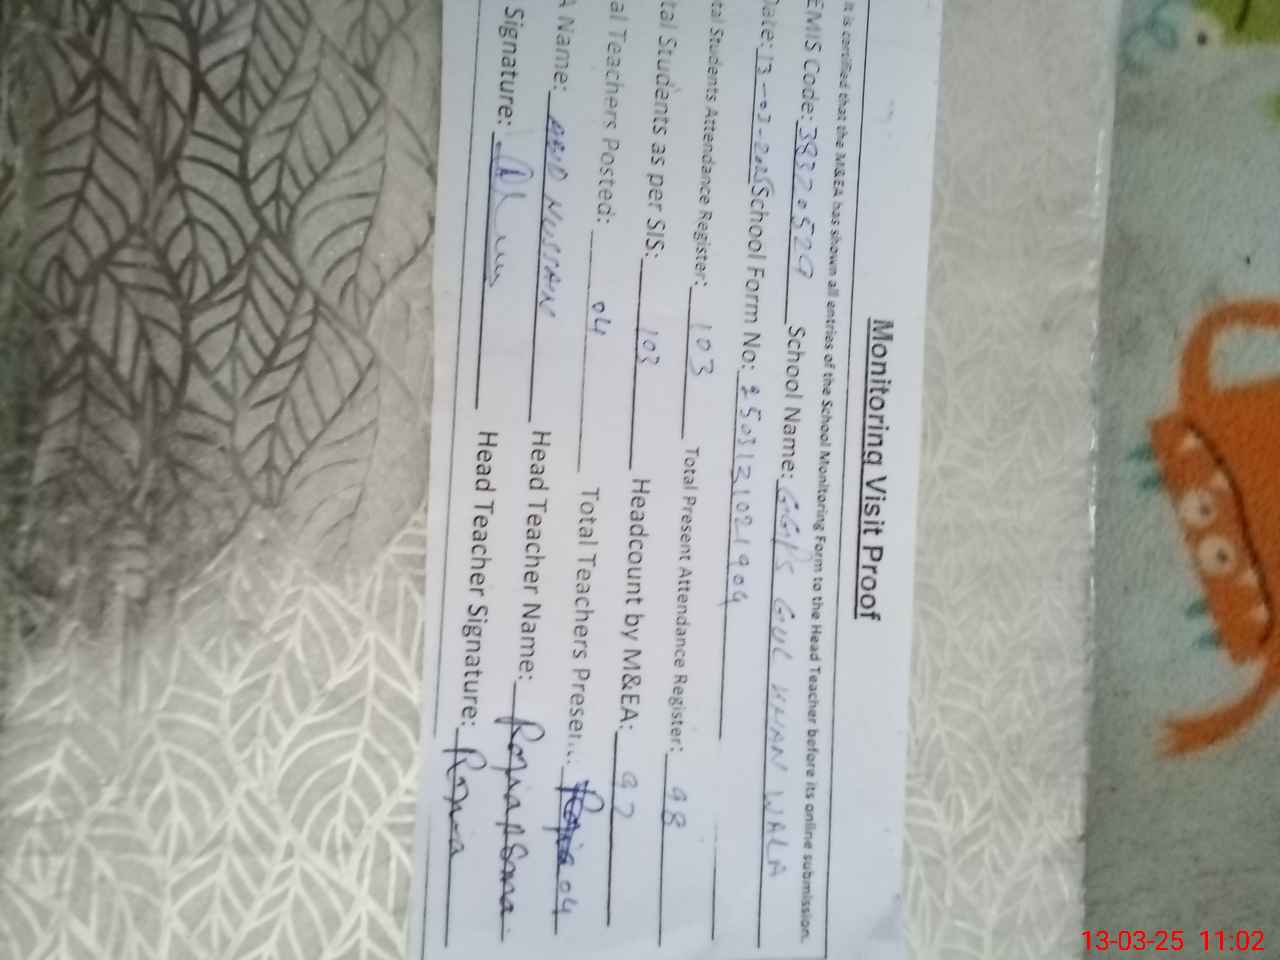 Monitoring Visit Proof
It is certified that the M&EA has shown all entries of the School Monitoring Form to the Head Teacher before its online submission.
EMIS Code: 38320529 School Name: GGPS GUL WALA
Date: 13-03-2025 School Form No: 2503121021904
tal Students Attendance Register: 103 Total Present Attendance Register: 98
tal Students as per SIS: 103 Headcount by M&EA: 97
al Teachers Posted: 04 Total Teachers Presen.. 04
A Name: ABID HUSSAIN Head Teacher Name: Razia
Signature: Head Teacher Signature: Razia
13-03-25 11:02